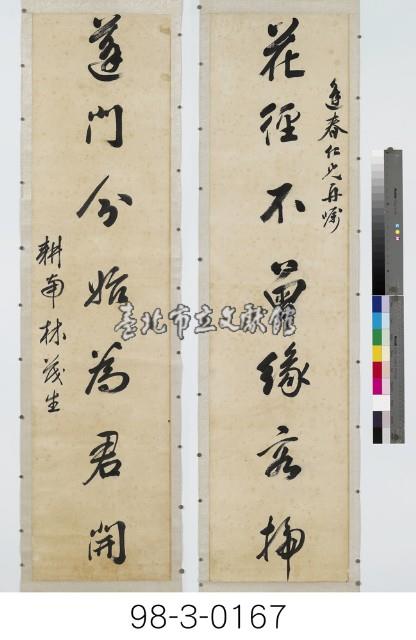 逢春仁兄再囑
花徑不曾緣客掃
蓬門今始為君開
耕南林茂生
臺北市立文獻館
98-3-0167